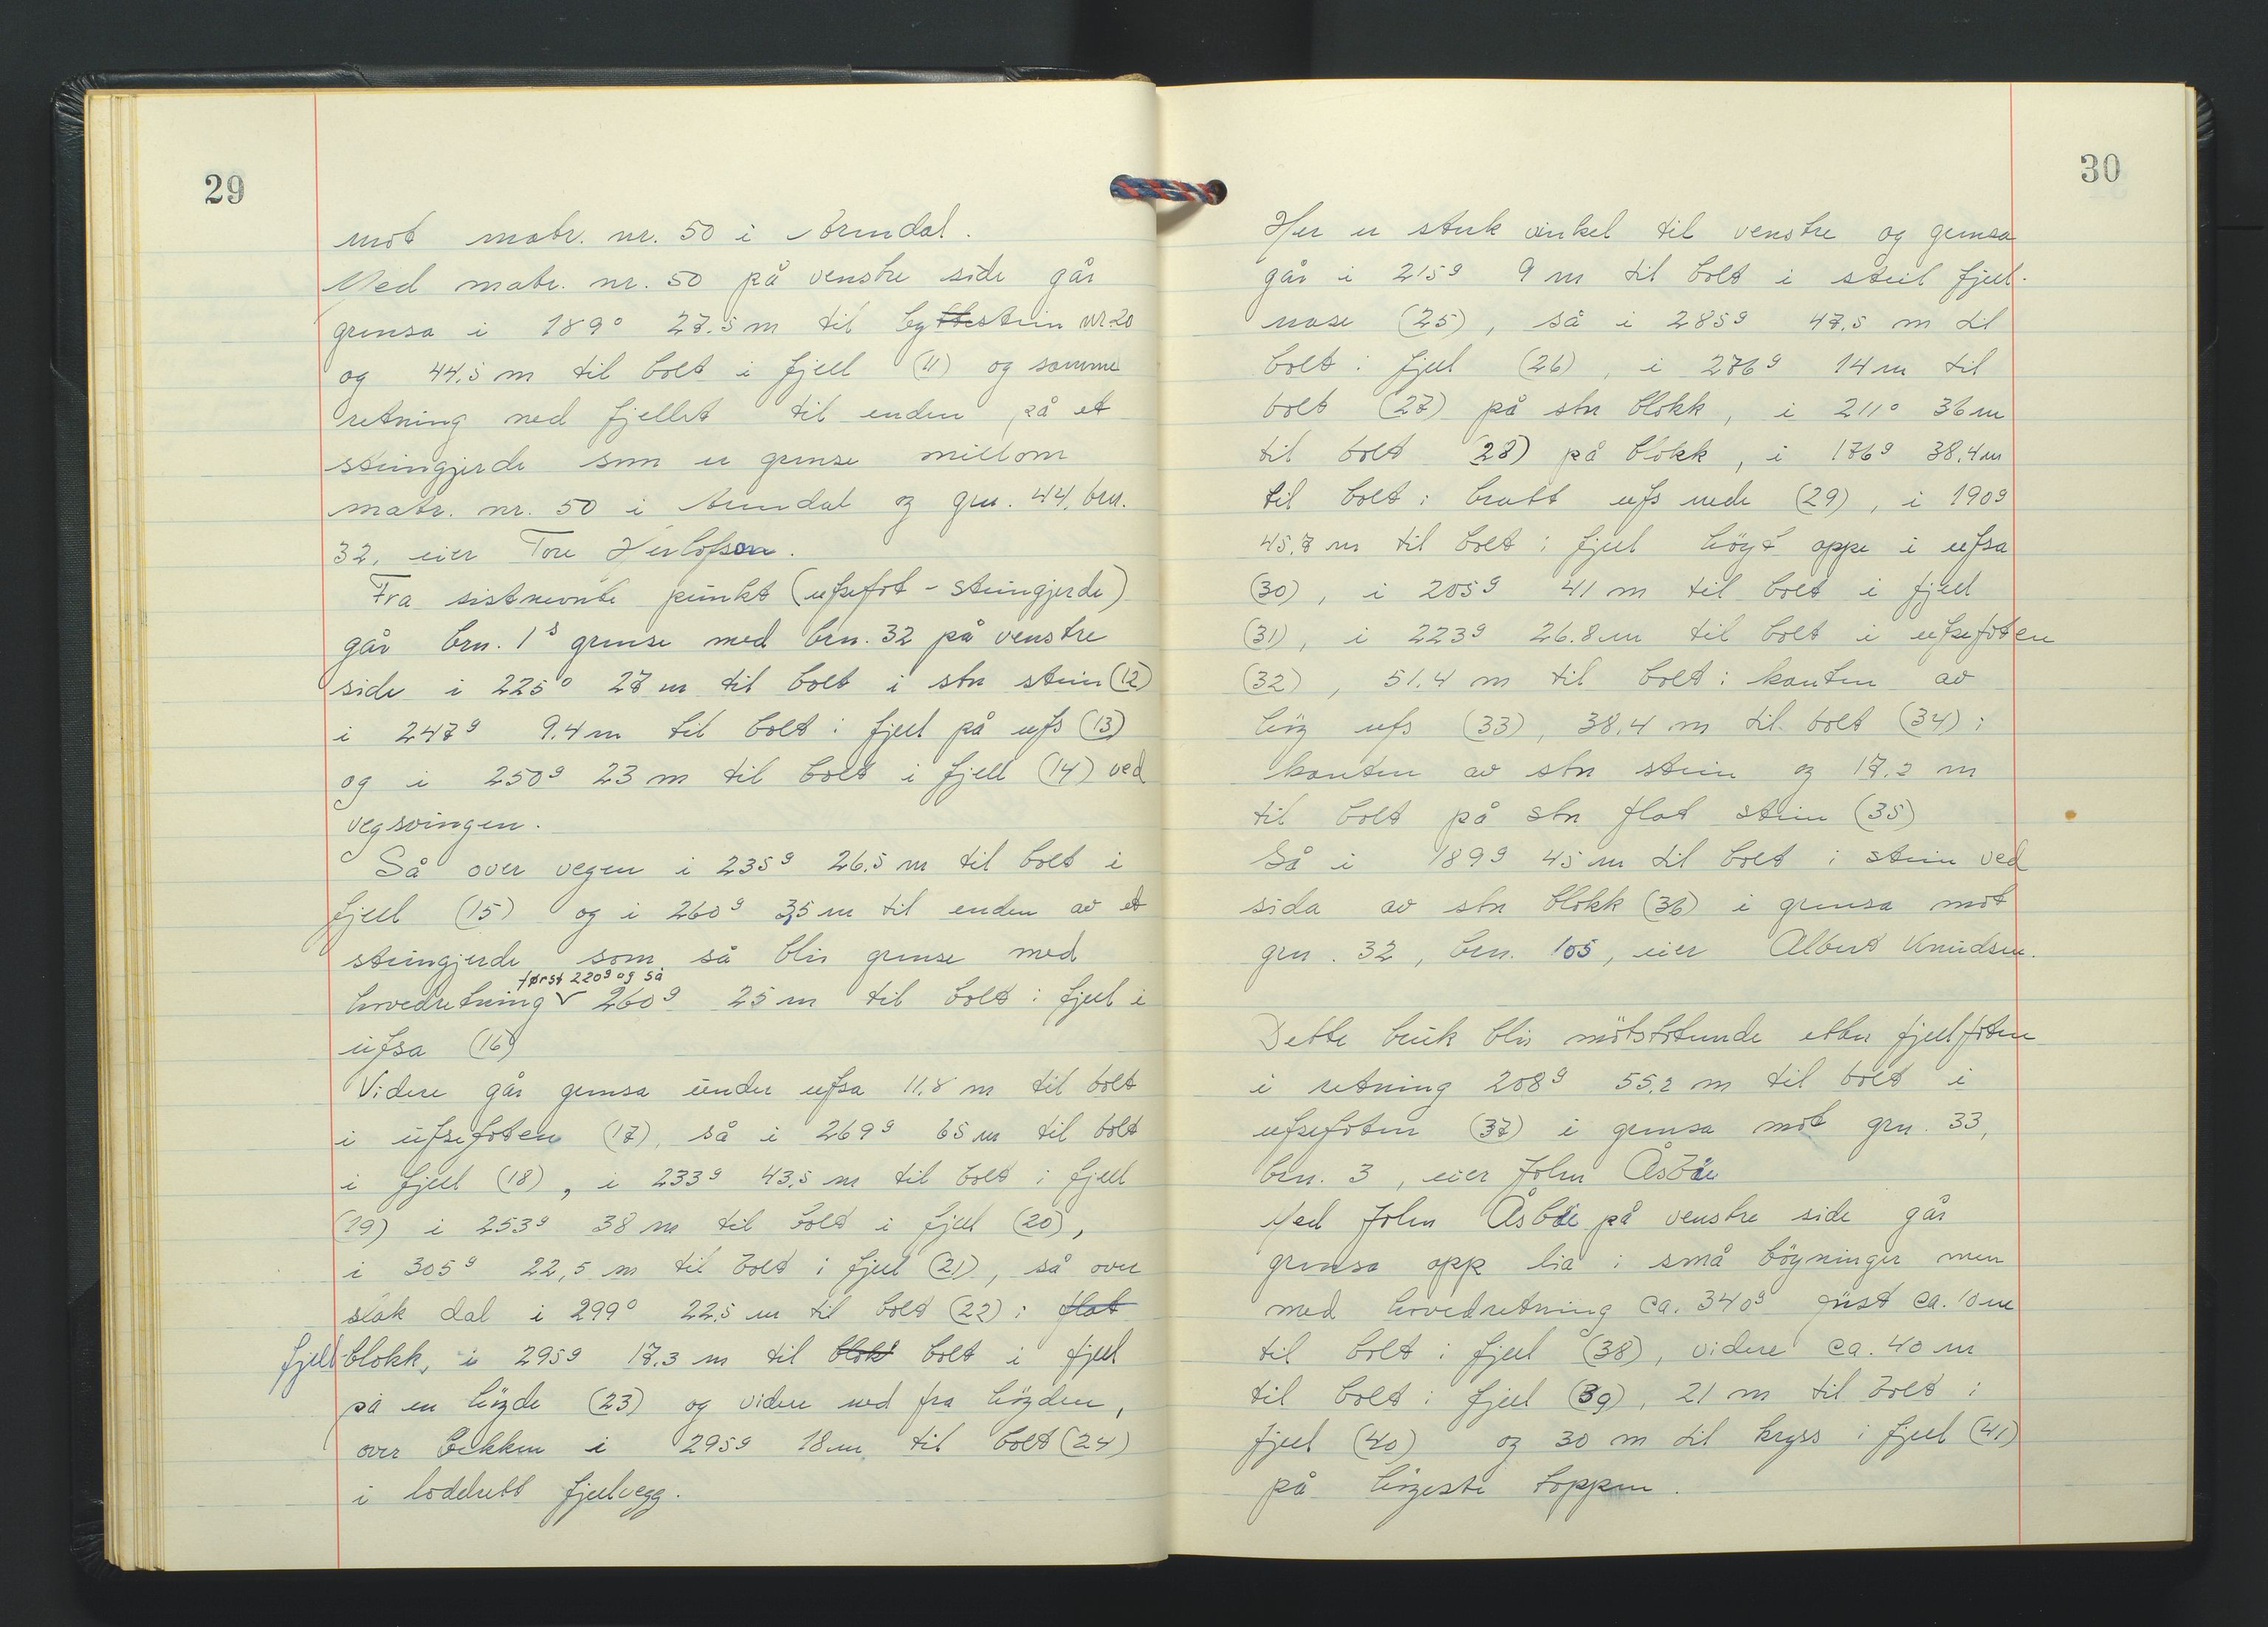 29
mot matr. nr. 50 i Arendal.
Med matr. nr. 50 på venstre side går
grensa i 189° 27.5 m til byttestein nr. 20
og 44.5 m til bolt i fjell (11) og samme
retning ned fjellet til enden på et
steingjerde som er grense millom
matr. nr. 50 i Arendal og gnr. 44, brn.
32, eier Tore Herlofson.
Fra sistnevnte punkt (ufsefot - steingjerde)
går brn. 1s grense med brn. 32 på venstre
side i 225° 27 m til bolt i stor stein (12)
i 247g 9.4 m til bolt i fjell på ufs (13)
og i 250g 23 m til bolt i fjell (14) ved
vegsvingen.
Så over vegen i 235g 26.5 m til bolt i
fjell (15) og i 260g 3,5 m til enden av et
steingjerde som så blir grense med
først 220g og så
hovedretning 260g 25 m til bolt i fjell i
ufsa (16)
Videre går grensa under ufsa 11.8 m til bolt
i ufsefoten (17), så i 269g 65 m til bolt
i fjell (18), i 233g 43.5 m til bolt i fjell
(19) i 253g 38 m til bolt i fjell (20),
i 305g 22,5 m til bolt i fjell (21), så over
slak dal i 299° 22.5 m til bolt (22) i flat
fjellblokk, i 295g 17.3 m til blokk bolt i fjell
på en høgde (23) og videre ned fra høgden,
over bekken i 295g 18 m til bolt (24)
i loddrett fjellvegg.
30
Her er sterk vinkel til venstre og grensa
går i 215g 9 m til bolt i steil fjell-
nase (25), så i 285g 47.5 m til
bolt i fjell (26), i 276g 14 m til
bolt (27) på stor blokk, i 211° 36 m
til bolt (28) på blokk, i 176g 38.4 m
til bolt i bratt ufs nede (29), i 190g
45.7 m til bolt i fjell høgt oppe i ufsa
(30), i 205g 41 m til bolt i fjell
(31), i 223g 26.8 m til bolt i ufsefoten
(32), 51.4 m til bolt i kanten av
høg ufs (33), 38.4 m til bolt (34) i
kanten av stor stein og 17.2 m
til bolt på stor flat stein (35)
Så i 189g 45 m til bolt i stein ved
sida av stor blokk (36) i grensa mot
gnr. 32, brn. 105, eier Albert Knudsen.
Dette bruk blir møtstøtende etter fjellfoten
i retning 208g 55.2 m til bolt i
ufsefoten (37) i grensa mot gnr. 33,
brn. 3, eier John Åsbie
Med John Åsbie på venstre side går
grensa opp lia i små bøyninger men
med hovedretning ca. 340g først ca. 10 m
til bolt i fjell (38), videre ca. 40 m
til bolt i fjell (39), 21 m til bolt i
fjell (40) og 30 m til kryss i fjell (41)
på høgeste toppen.